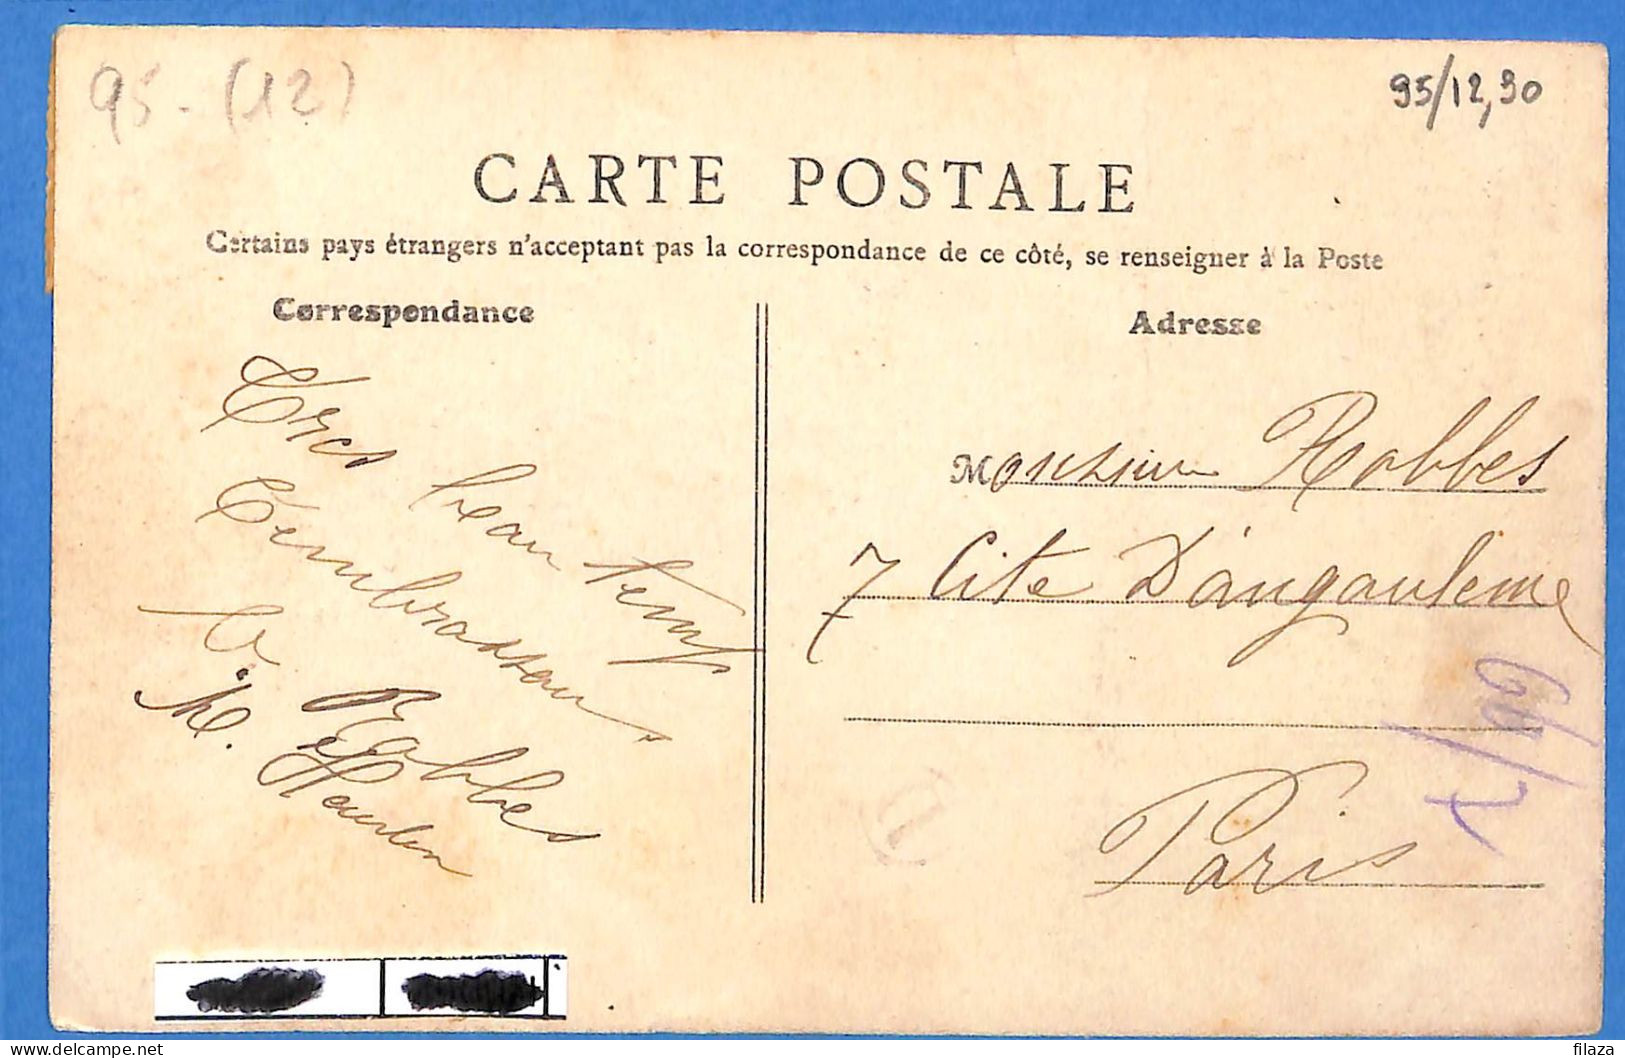 95-(12)
95/12,90
CARTE POSTALE
Certains pays étrangers n'acceptant pas la correspondance de ce côté, se renseigner à la Poste
Correspondance
Tres beau temps
T'embrassons
M. Robbes
Adresse
Monsieur Robbes
7 Cite D'angouleme
Paris
delcampe.net
filaza